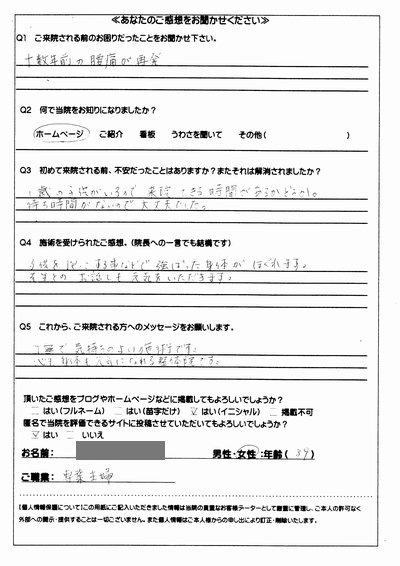 ≪あなたのご感想をお聞かせください≫
Q1 ご来院される前のお困りだったことをお聞かせ下さい。
十数年前の腰痛が再発
Q2 何で当院をお知りになりましたか？
ホームページ ご紹介 看板 うわさを聞いて その他( )
Q3 初めて来院される前、不安だったことはありますか？またそれは解消されましたか？
1歳の子供がいるので来院できる時間があるかどうか。
待ち時間がないので大丈夫だった。
Q4 施術を受けられたご感想。(院長への一言でも結構です)
子供を抱っこする事などで強ばった身体がほぐれます。
先生とのお話しも元気をいただきます。
Q5 これから、ご来院される方へのメッセージをお願いします。
丁寧で気持ちのよい施術です。
心も身体も元気になれる整体院です。
頂いたご感想をブログやホームページなどに掲載してもよろしいでしょうか？
はい(フルネーム) はい(苗字だけ) はい(イニシャル) 掲載不可
匿名で当院を評価できるサイトに投稿させていただいてもよろしいでしょうか？
はい いいえ
お名前： 男性・女性：年齢( 39 )
ご職業： 専業主婦
【個人情報保護について】この用紙にご記入いただきました情報は当院の貴重なお客様データーとして厳重に管理し、ご本人の許可なく
外部への開示・提供することは一切ございません。また個人情報はご本人様からの申し出により訂正・削除いたします。